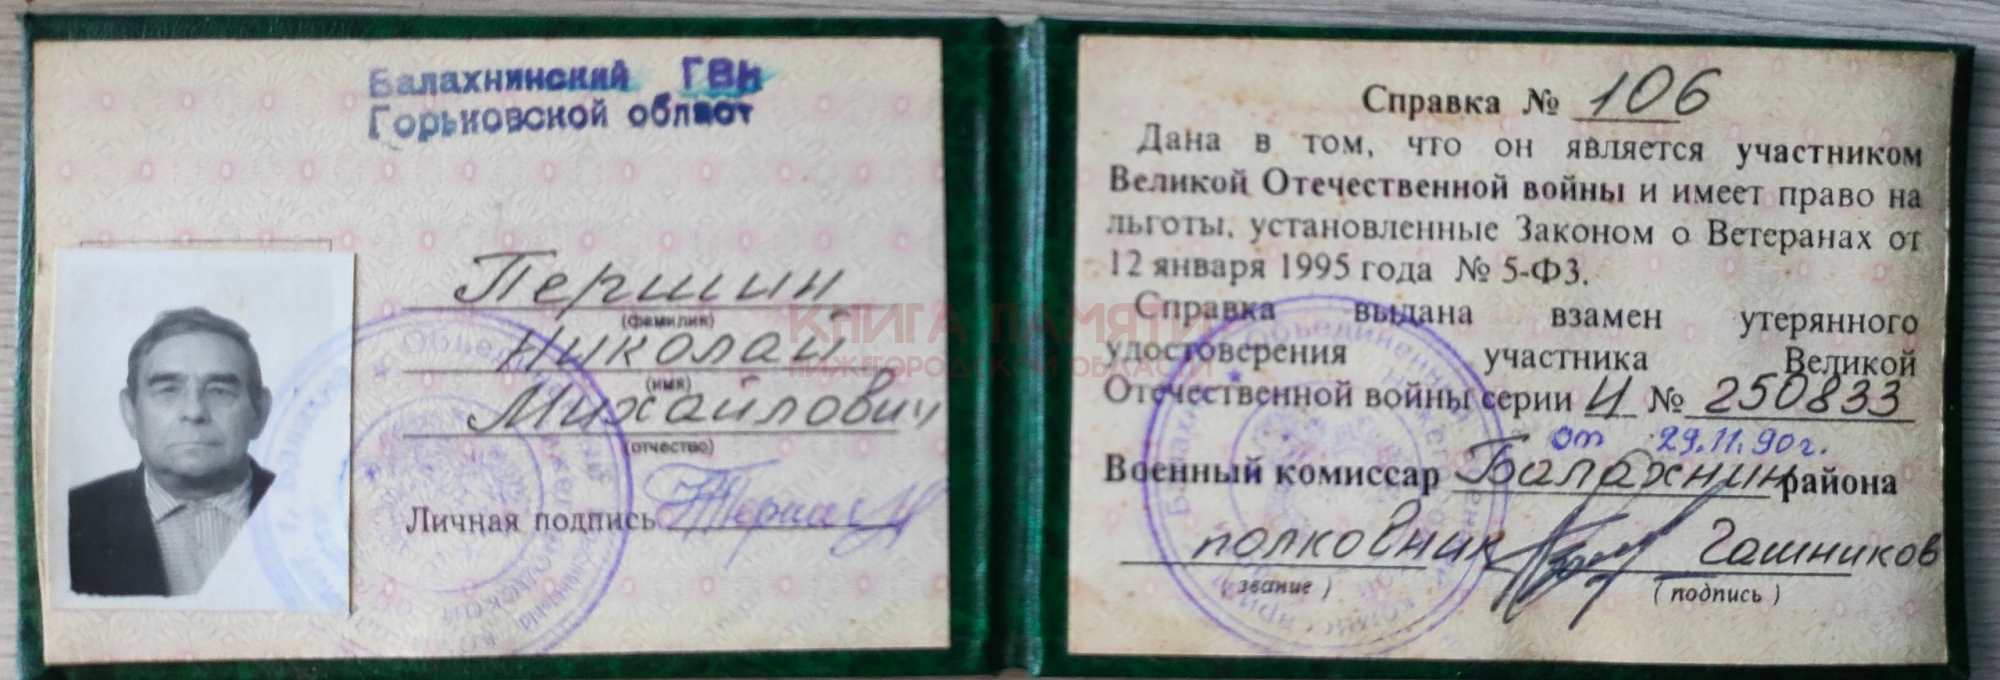 Балахнинский ГВК
Горьковской област
Першин
(фамилия)
Николай
(имя)
Михайлович
(отчество)
Личная подпись
Справка № 106
Дана в том, что он является участником
Великой Отечественной войны и имеет право на
льготы, установленные Законом о Ветеранах от
12 января 1995 года № 5-ФЗ.
Справка выдана взамен утерянного
удостоверения участника Великой
Отечественной войны серии И № 250833
от 29.11.90г.
Военный комиссар Балахнин района
полковник Гашников
(звание) (подпись)
КНИГА ПАМЯТИ
НИЖЕГОРОДСКОЙ ОБЛАСТИ